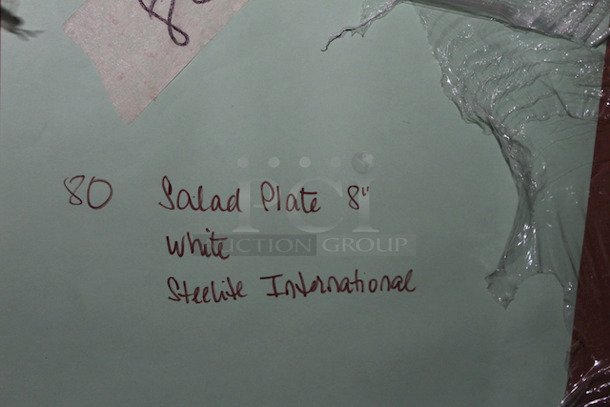 80 Salad Plate 8"
White
Steelite International
PCI
AUCTION GROUP